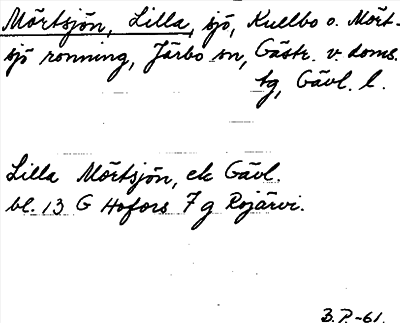 Mörtsjön, Lilla, sjö, Kullbo o. Mört-
sjö ronning, Järbo sn, Gästr. v. doms.
tg, Gävl. l.
Lilla Mörtsjön, ek Gävl.
bl. 13 G Hofors 7 g Rojärvi.
B.P.-61.